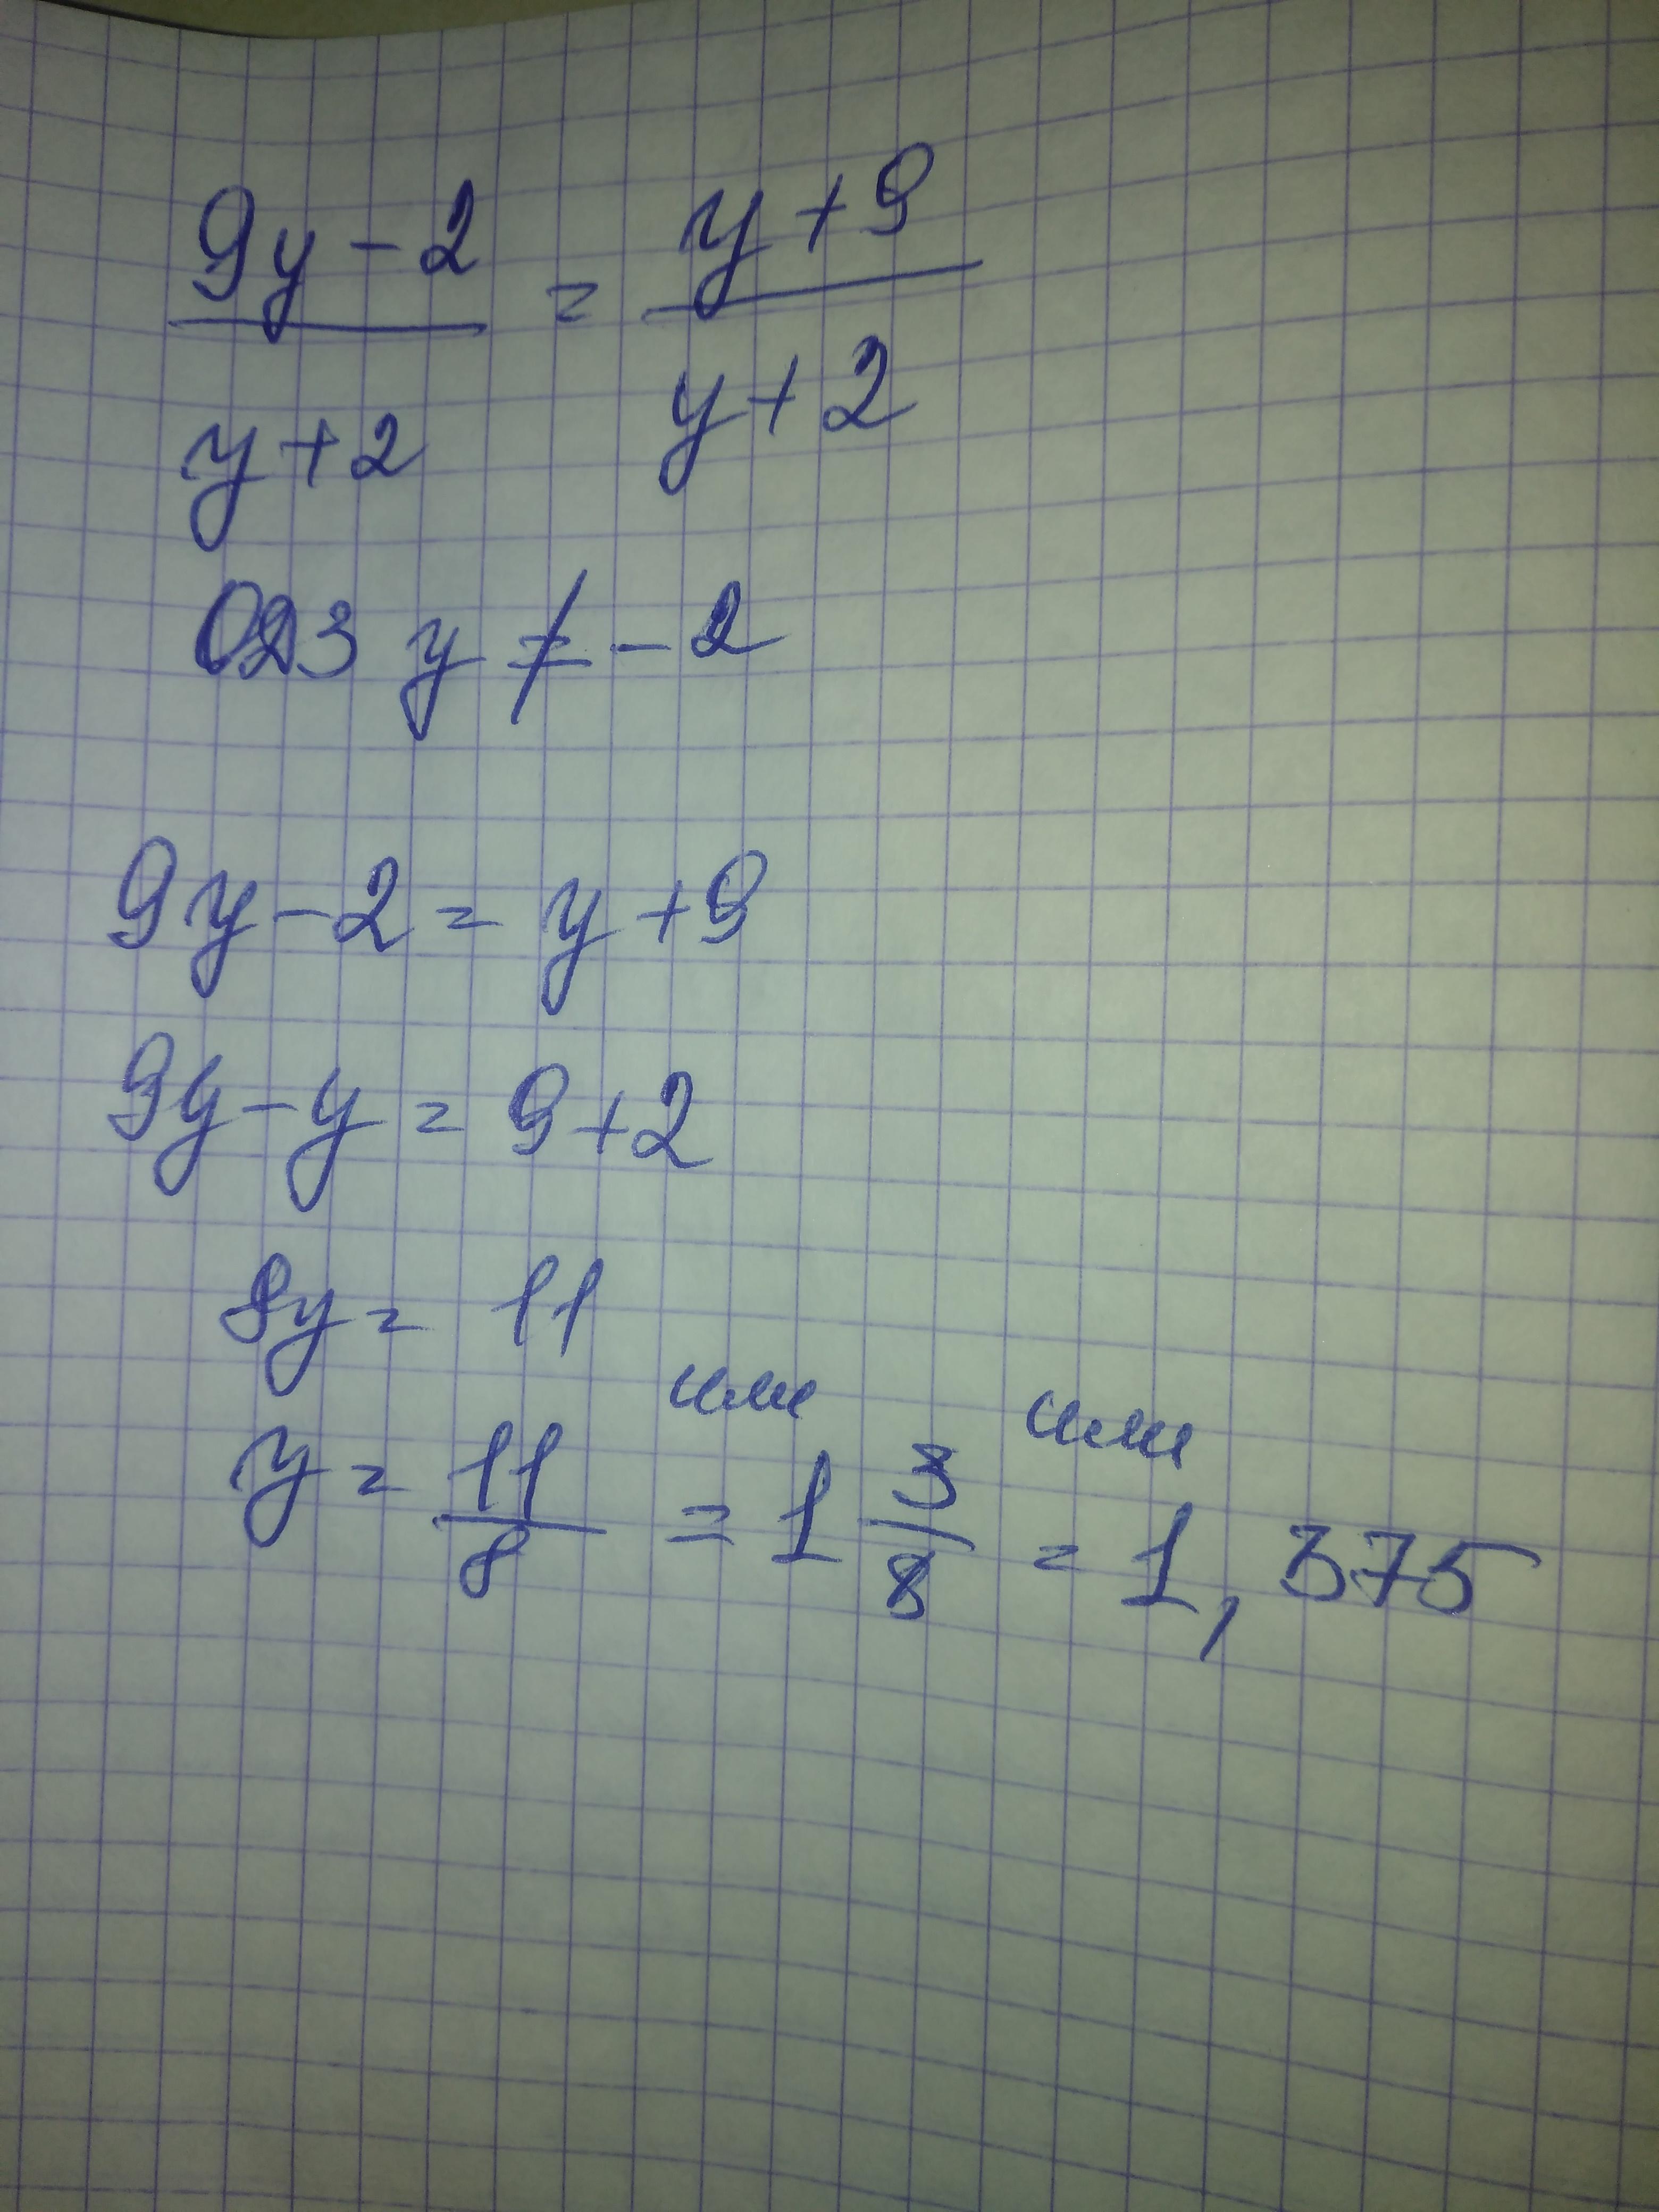 9y - 2 = y + 9
y + 2 y + 2
ОДЗ y ≠ - 2
9y - 2 = y + 9
9y - y = 9 + 2
8y = 11
или или
y = 11/8 = 1 3/8 = 1,375